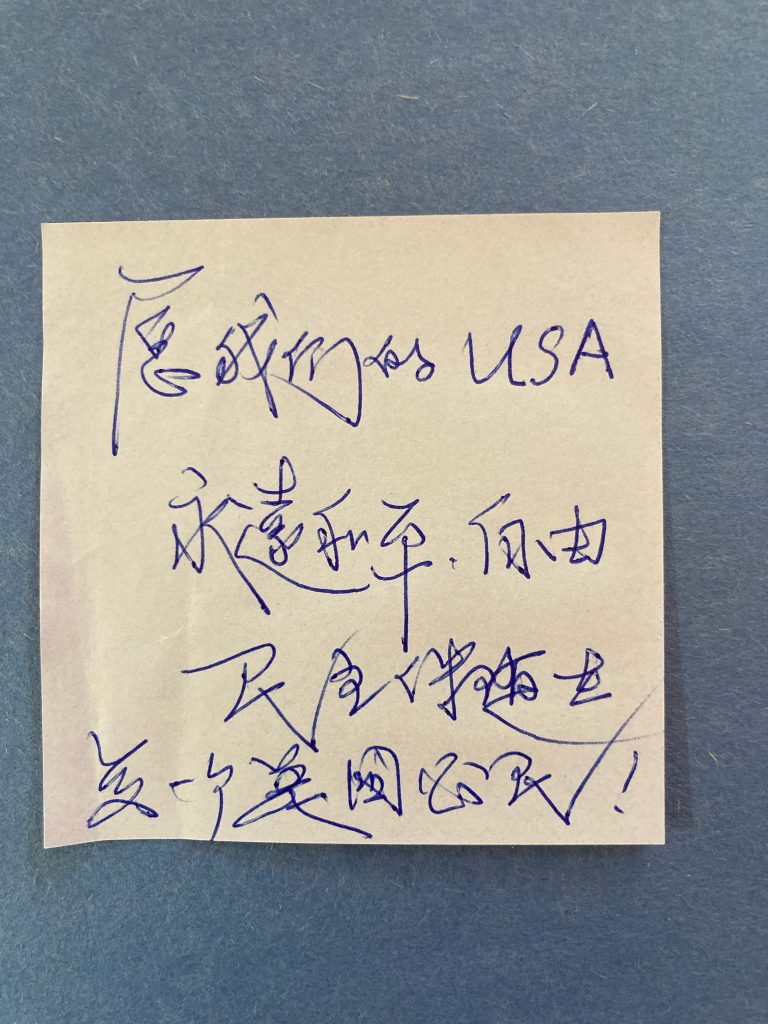 愿我们的 USA
永遠和平.自由
民主
一个美国公民!